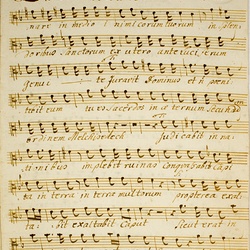 in medio inimicorum tuorum in splen
doribus Sanctorum ex utero ante luciferum
genui te juravit Dominus et non poeni
tebit eum tu es sacerdos in aeternum Secundum
ordinem Melchisedech Judicabit in na
tionibus implebit ruinas Conquassabit capi
ta in terra in terra multorum propterea exal
ta bit exaltabit Caput Sicut erat in